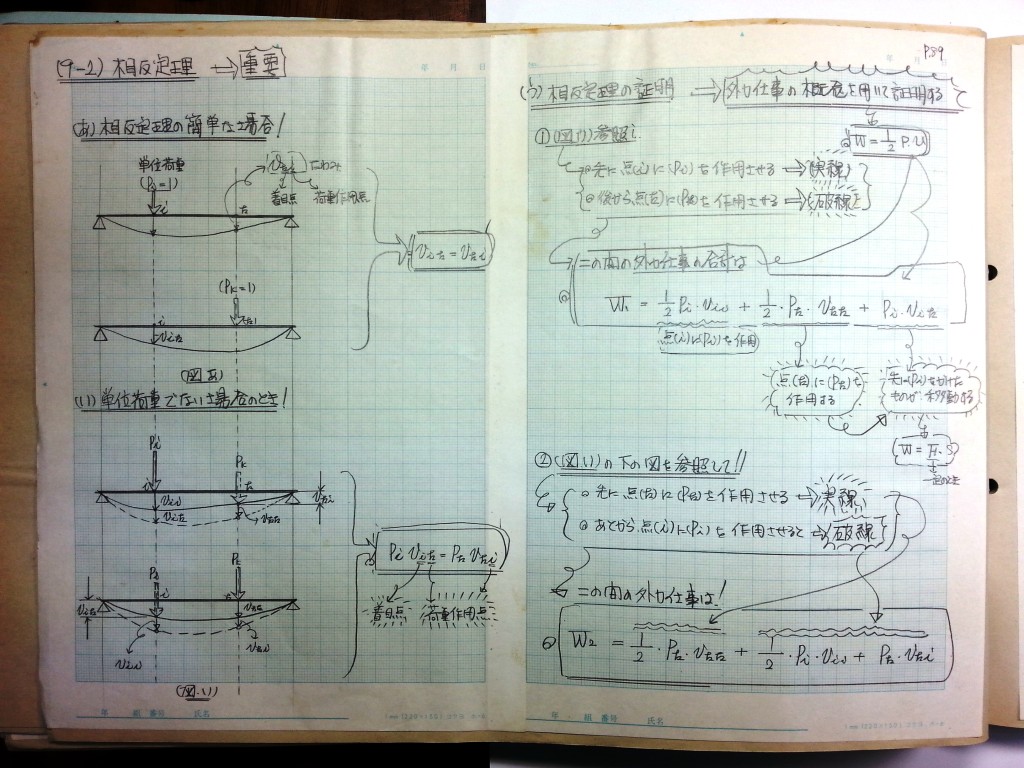 (9-2) 相反定理 ⇒ 重要
(あ) 相反定理の簡単な場合!
単位荷重
(Pi=1)
i
k
着目点 荷重作用点
υik = υki
(Pk=1)
i
υik
(図あ)
(い) 単位荷重でない場合のとき!
Pi
Pk
i
k
υii
υik
υkk
υki
Pi υik = Pk υki
着目点 荷重作用点
Pi
Pk
i
k
υik
υkk
υii
υki
(図.い)
年 組 番号 氏名
年 月 日
P.89
(う) 相反定理の証明 ⇒ 外力仕事の概念を用いて証明すると
① (図.い)参照!
W = 1/2 P.υ
◎先に点(i)に(Pi)を作用させる⇒実線
◎後から点(k)に(Pk)を作用させる⇒破線
この間の外力仕事の合計は
W1 = 1/2 Pi・υii + 1/2・Pk・υkk + Pi・υik
点(i)に(Pi)を作用
点(k)に(Pk)を
作用する
先に(Pi)をかけた
ものが、移動する
② (図.い)の下の図を参照して!!
◎先に点(k)に(Pk)を作用させる⇒実線
◎あとから、点(i)に(Pi)を作用させると⇒破線
この間の外力仕事は!
W2 = 1/2・Pk・υkk + 1/2・Pi・υii + Pk・υki
年 組 番号 氏名